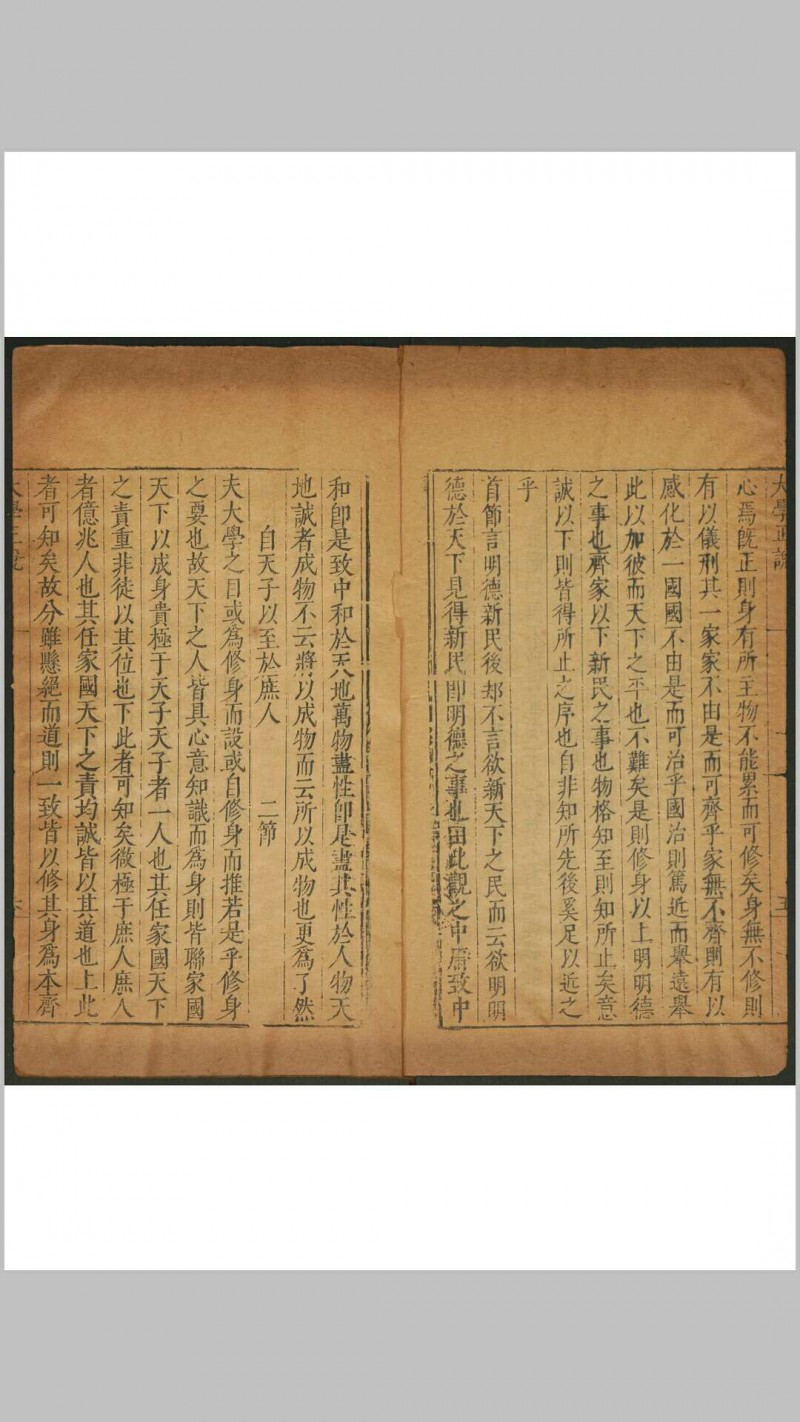 大學正說
五
心焉旣正則身有所主物不能累而可修矣身無不修則
有以儀刑其一家家不由是而可齊乎家無不齊則有以
感化於一國國不由是而可治乎國治則篤近而舉遠舉
此以加彼而天下之平也不難矣是則修身以上明明德
之事也齊家以下新民之事也物格知至則知所止矣意
誠以下則皆得所止之序也自非知所先後奚足以近之
乎
首節言明德新民後却不言欲新天下之民而云欲明明
德於天下見得新民卽明德之事也由此觀之中庸致中
和卽是致中和於天地萬物盡性卽是盡其性於人物天
地誠者成物不云將以成物而云所以成物也更爲了然
自天子以至於庶人 二節
夫大學之目或爲修身而設或自修身而推若是乎修身
之要也故天下之人皆具心意知識而爲身則皆聯家國
天下以成身貴極于天子天子者一人也其任家國天下
之責重非徒以其位也下此者可知矣微極于庶人庶人
者億兆人也其任家國天下之責均誠皆以其道也上此
者可知矣故分雖懸絕而道則一致皆以修其身爲本齊